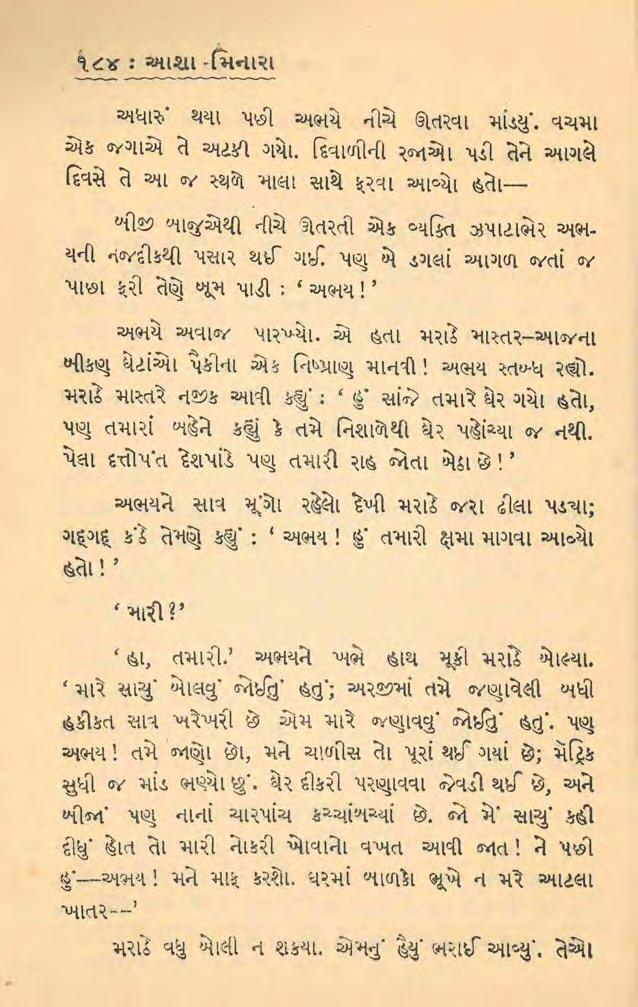 ૧૮૪ : આશા-મિનારા
અધારું થયા પછી અભયે નીચે ઊતરવા માંડયું. વચમા
એક જગાએ તે અટકી ગયો. દિવાળીની રજાઓ પડી તેને આગલે
દિવસે તે આ જ સ્થળે માલા સાથે ફરવા આવ્યો હતો—
બીજી બાજુએથી નીચે ઊતરતી એક વ્યક્તિ ઝપાટાભેર અભ-
યની નજદીકથી પસાર થઈ ગઈ. પણ બે ડગલાં આગળ જતાં જ
પાછા ફરી તેણે બૂમ પાડી : ‘ અભય ! ’
અભયે અવાજ પારખ્યો. એ હતા મરાઠે માસ્તર–આજના
બીકણ ઘેટાંઓ પૈકીના એક નિષ્પ્રાણ માનવી ! અભય સ્તબ્ધ રહ્યો.
મરાઠે માસ્તરે નજીક આવી કહ્યું : ‘ હું સાંજે તમારે ઘેર ગયો હતો,
પણ તમારાં બહેને કહ્યું કે તમે નિશાળેથી ઘેર પહોંચ્યા જ નથી.
પેલા દત્તોપંત દેશપાંડે પણ તમારી રાહ જોતા બેઠા છે ! ’
અભયને સાવ મૂંગો રહેલો દેખી મરાઠે જરા ઢીલા પડ્યા;
ગદ્ગદ્ કંઠે તેમણે કહ્યું : ‘ અભય ! હું તમારી ક્ષમા માગવા આવ્યો
હતો ! ’
‘ મારી ?’
‘ હા, તમારી.’ અભયને ખભે હાથ મૂકી મરાઠે બોલ્યા.
‘ મારે સાચું બોલવું જોઈતું હતું; અરજીમાં તમે જણાવેલી બધી
હકીકત સાવ ખરેખરી છે એમ મારે જણાવવું જોઈતું હતું. પણ
અભય ! તમે જાણો છો, મને ચાળીસ તો પૂરાં થઈ ગયાં છે; મૅટ્રિક
સુધી જ માંડ ભણ્યો છું. ઘેર દીકરી પરણાવવા જેવડી થઈ છે, અને
બીજાં પણ નાનાં ચારપાંચ કચ્ચાંબચ્ચાં છે. જો મેં સાચું કહી
દીધું હોત તો મારી નોકરી ખોવાનો વખત આવી જાત ! ને પછી
હું—અભય ! મને માફ કરશો. ઘરમાં બાળકો ભૂખે ન મરે આટલા
ખાતર--’
મરાઠે વધુ બોલી ન શક્યા. એમનું હૈયું ભરાઈ આવ્યું. તેઓ